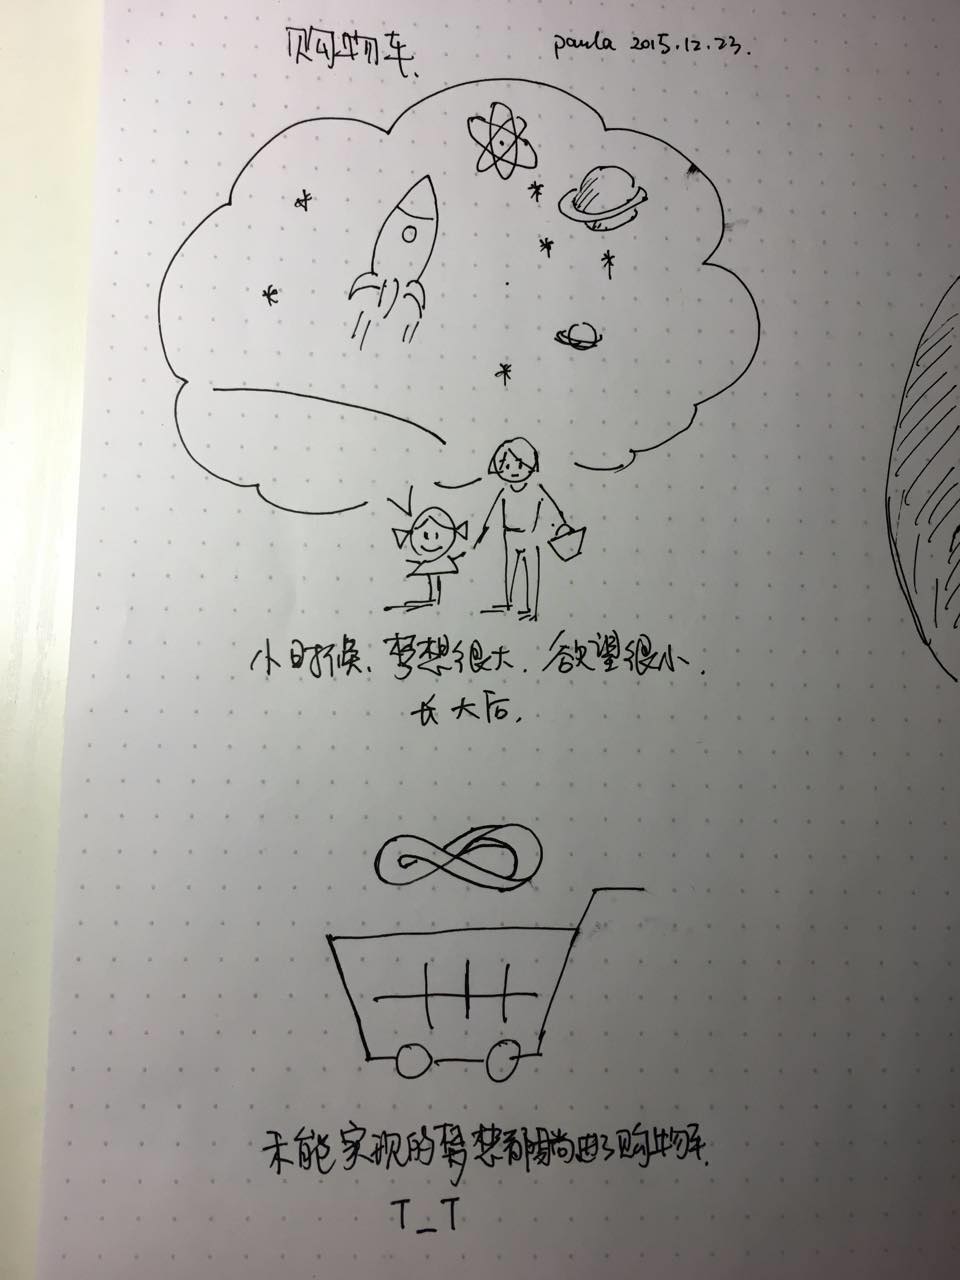 购物车.
paula 2015.12.23.
小时候、梦想很大、欲望很小.
长大后,
未能实现的梦想都躺进了购物车.
T_T